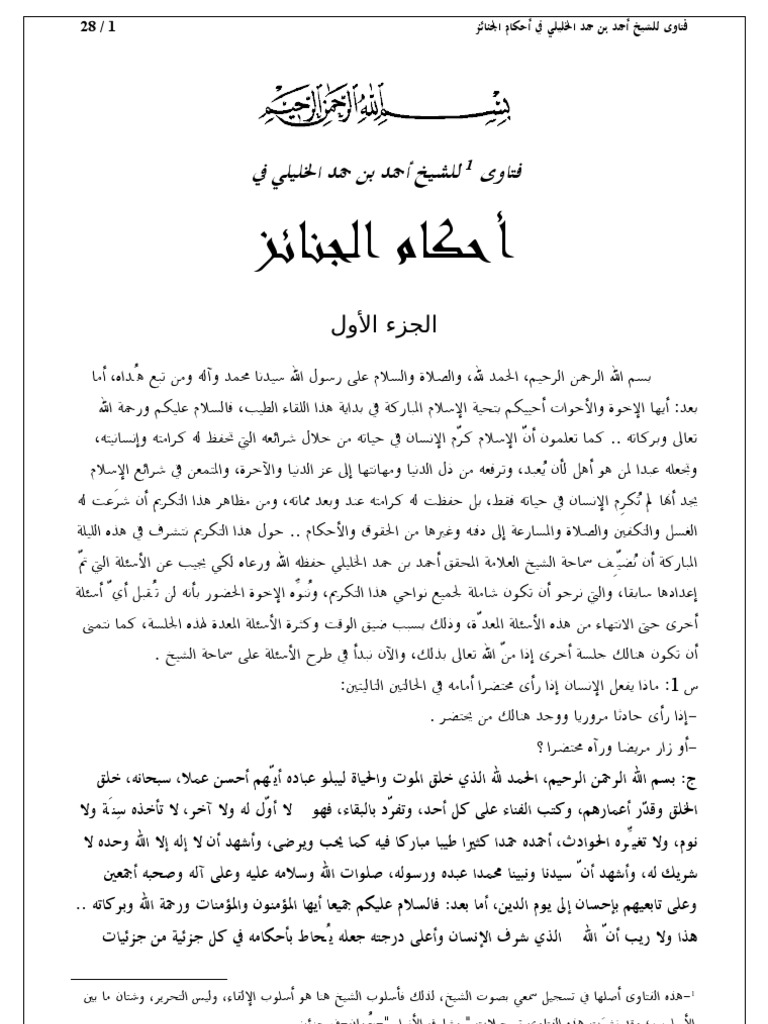 فتاوى للشيخ أحمد بن حمد الخليلي في أحكام الجنائز 1 / 28
بسم الله الرحمن الرحيم
فتاوى 1 للشيخ أحمد بن حمد الخليلي في
أحكام الجنائز
الجزء الأول
بسم الله الرحمن الرحيم، الحمد لله، والصلاة والسلام على رسول الله سيدنا محمد وآله ومن تبع هُداه، أما
بعد: أيها الإخوة والأخوات أحييكم بتحية الإسلام المباركة في بداية هذا اللقاء الطيب، فالسلام عليكم ورحمة الله
تعالى وبركاته .. كما تعلمون أنّ الإسلام كرّم الإنسان في حياته من خلال شرائعه التي تحفظ له كرامته وإنسانيته،
وتجعله عبدا لمن هو أهل لأن يُعبد، وترفعه من ذل الدنيا ومهانتها إلى عز الدنيا والآخرة، والمتمعن في شرائع الإسلام
يجد أنها لم تُكرِم الإنسان في حياته فقط، بل حفظت له كرامته عند وبعد مماته، ومن مظاهر هذا التكريم أن شرَعت له
الغسل والتكفين والصلاة والمسارعة إلى دفنه وغيرها من الحقوق والأحكام .. حول هذا التكريم نتشرف في هذه الليلة
المباركة أن نُضيِّف سماحة الشيخ العلامة المحقق أحمد بن حمد الخليلي حفظه الله ورعاه لكي يجيب عن الأسئلة التي تمّ
إعدادها سابقا، والتي نرجو أن تكون شاملة لجميع نواحي هذا التكريم، ونُنوِّه الإخوة الحضور بأنه لن تُقبل أيّ أسئلة
أخرى حتى الانتهاء من هذه الأسئلة المعدّة، وذلك بسبب ضيق الوقت وكثرة الأسئلة المعدة لهذه الجلسة، كما نتمنى
أن تكون هنالك جلسة أخرى إذا منّ الله تعالى بذلك، والآن نبدأ في طرح الأسئلة على سماحة الشيخ .
س 1: ماذا يفعل الإنسان إذا رأى محتضرا أمامه في الحالتين التاليتين:
–إذا رأى حادثا مروريا ووجد هنالك من يحتضر .
–أو زار مريضا ورآه محتضرا ؟
ج: بسم الله الرحمن الرحيم، الحمد لله الذي خلق الموت والحياة ليبلو عباده أيّهم أحسن عملا، سبحانه، خلق
الخلق وقدّر أعمارهم، وكتب الفناء على كل أحد، وتفرّد بالبقاء، فهو لا أوّل له ولا آخر، لا تأخذه سِنَة ولا
نوم، ولا تغيِّره الحوادث، أحمده حمدا كثيرا طيبا مباركا فيه كما يحب ويرضى، وأشهد أن لا إله إلا الله وحده لا
شريك له، وأشهد أنّ سيدنا ونبينا محمدا عبده ورسوله، صلوات الله وسلامه عليه وعلى آله وصحبه أجمعين
وعلى تابعيهم بإحسان إلى يوم الدين، أما بعد: فالسلام عليكم جميعا أيها المؤمنون والمؤمنات ورحمة الله وبركاته ..
هذا ولا ريب أنّ الله الذي شرف الإنسان وأعلى درجته جعله يُحاط بأحكامه في كل جزئية من جزئيات
1–هذه الفتاوى أصلها في تسجيل سمعي بصوت الشيخ، لذلك فأسلوب الشيخ هنا هو أسلوب الإلقاء، وليس التحرير، وشتان ما بين